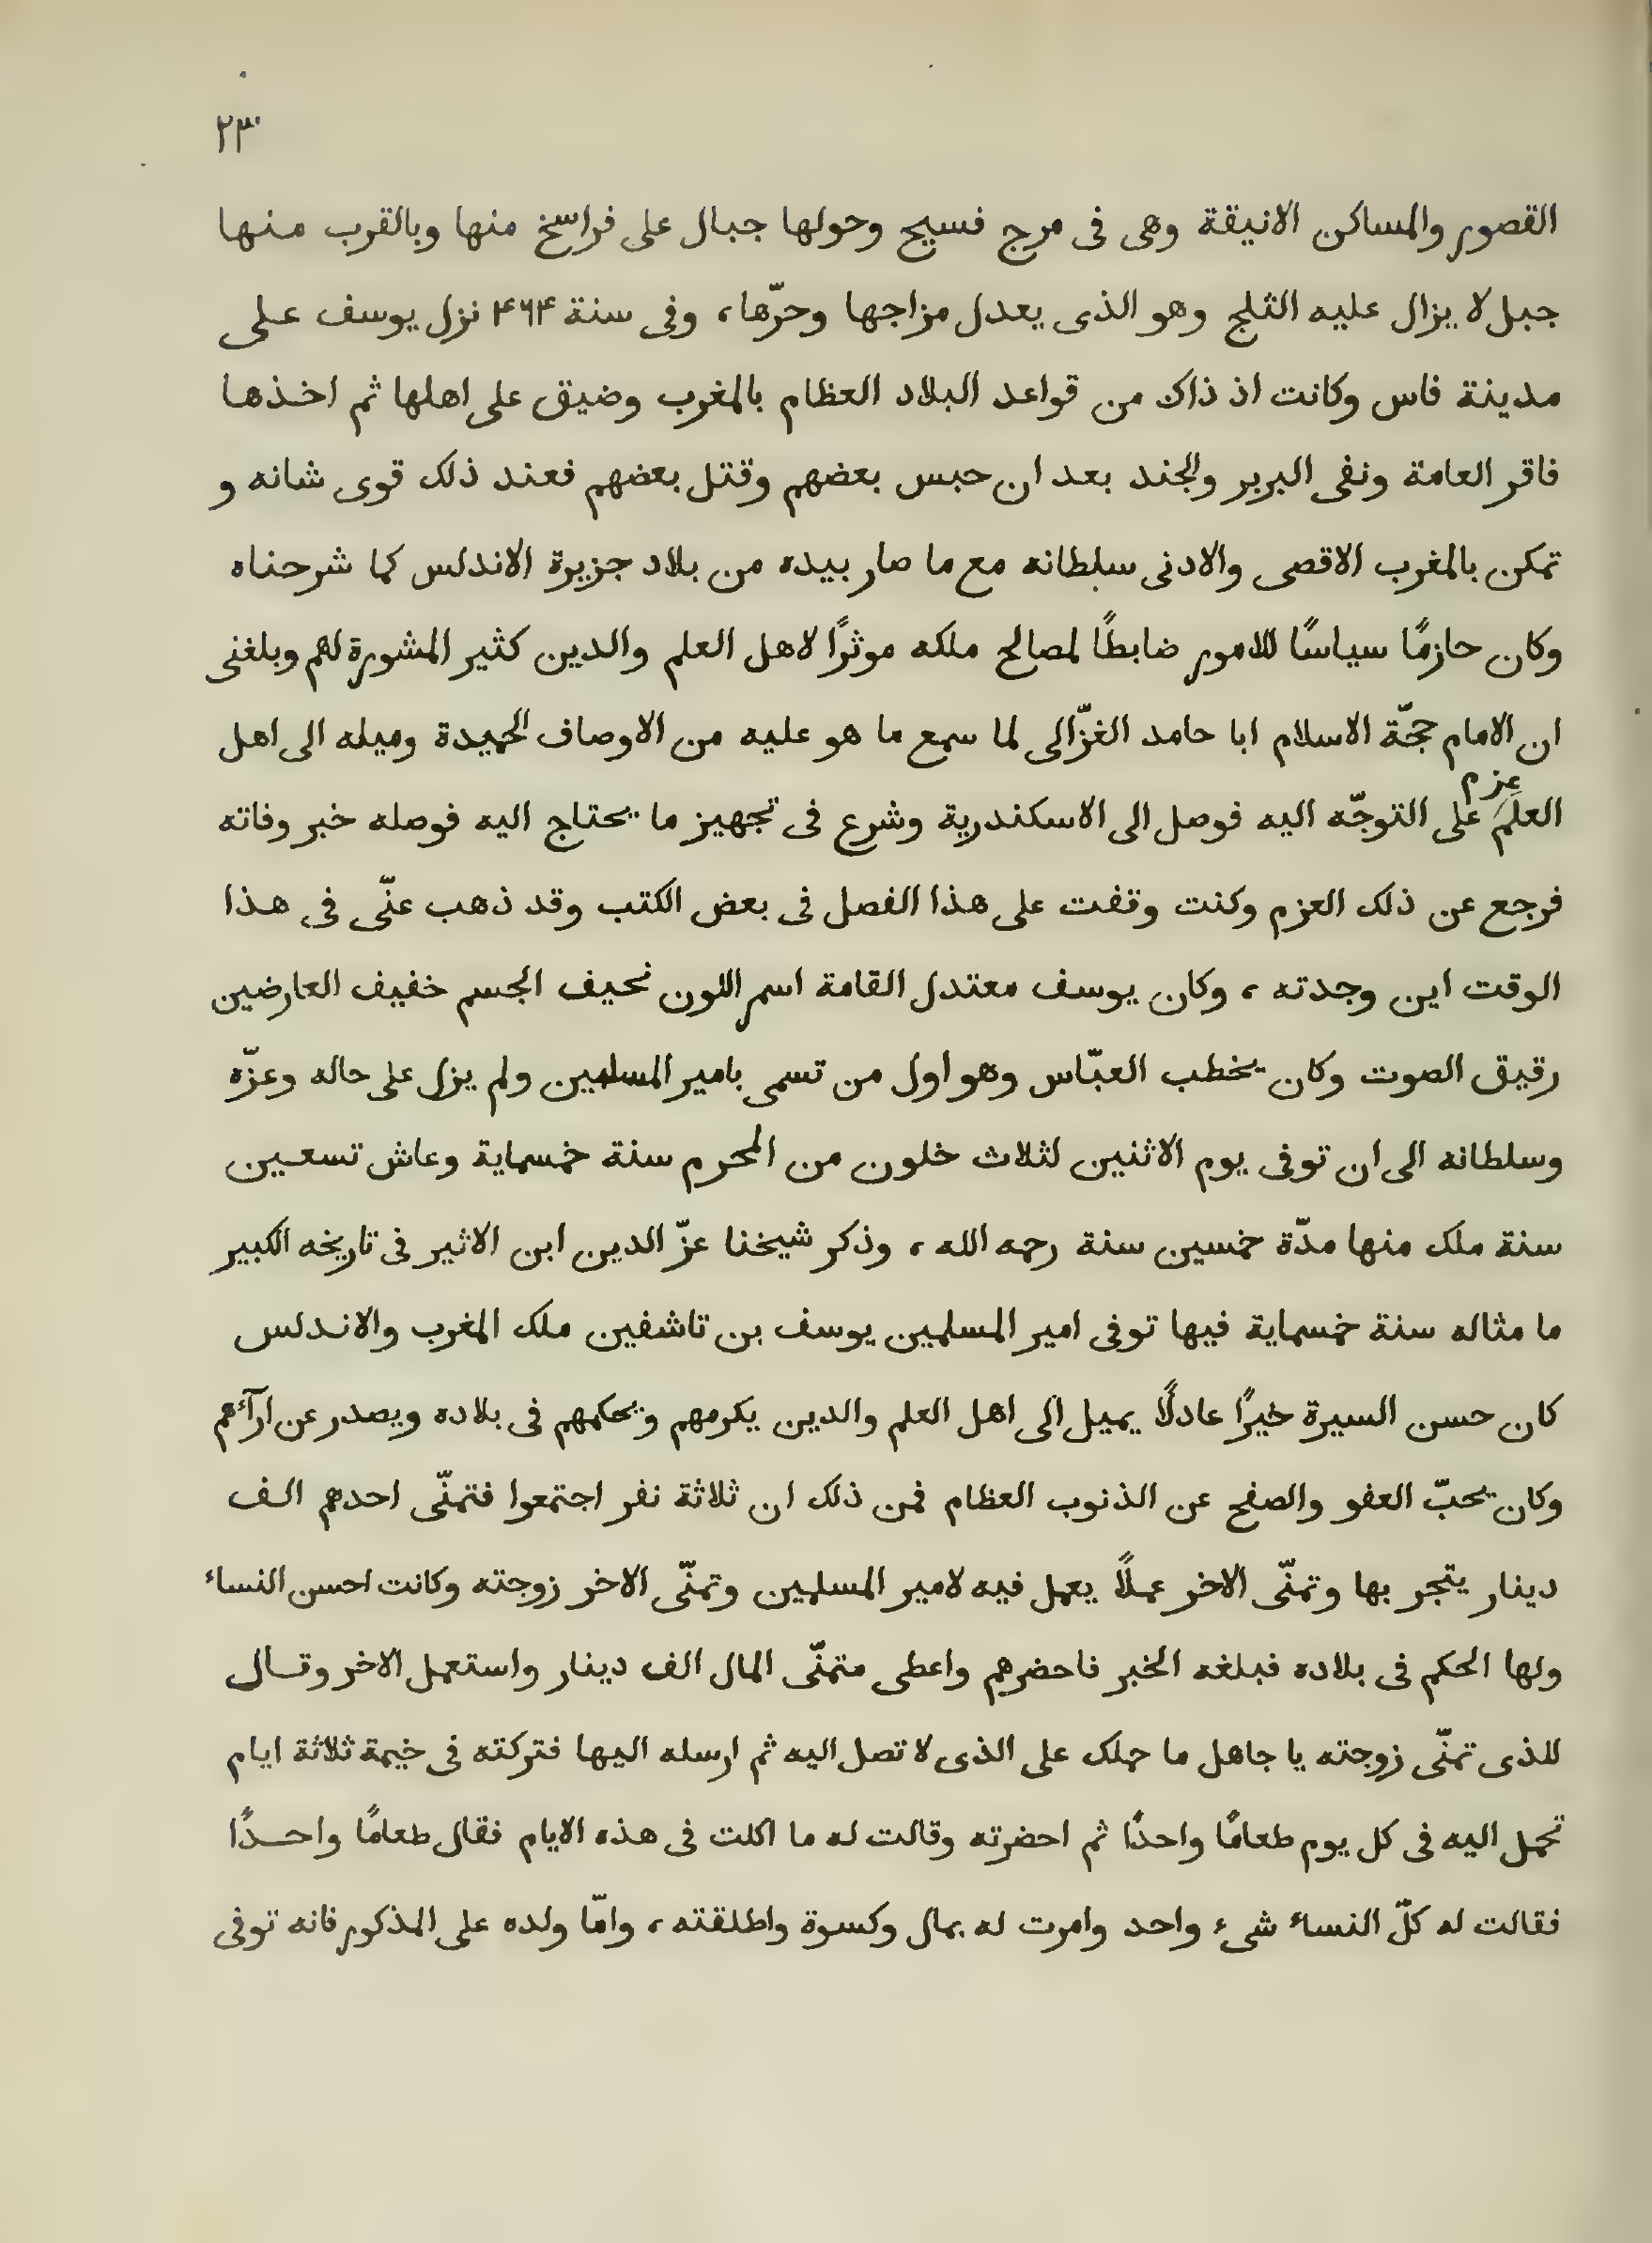 ٢٣
القصور والمساكن الانيقة وهى فى مرج فسيح وحولها جبال على فراسخ منها وبالقرب منها
جبل لا يزال عليه الثلج وهو الذى يعدل مزاجها وحرّها، وفى سنة ۴۶۴ نزل يوسف على
مدينة فاس وكانت اذ ذاك من قواعد البلاد العظام بالمغرب وضيق على اهلها ثم اخذها
فاقر العامة ونفى البربر والجند بعد ان حبس بعضهم وقتل بعضهم فعند ذلك قوى شانه و
تمكن بالمغرب الاقصى والادنى سلطانه مع ما صار بيده من بلاد جزيرة الاندلس كما شرحناه
وكان حازمًا سياسًا للامور ضابطًا لمصالح ملكه موثرًا لاهل العلم والدين كثير المشورة لهم وبلغنى
ان الامام حجّة الاسلام ابا حامد الغزّالى لما سمع ما هو عليه من الاوصاف الحميدة وميله الى اهل
العلم عزم على التوجّه اليه فوصل الى الاسكندرية وشرع فى تجهيز ما يحتاج اليه فوصله خبر وفاته
فرجع عن ذلك العزم وكنت وقفت على هذا الفصل فى بعض الكتب وقد ذهب عنّى فى هذا
الوقت اين وجدته، وكان يوسف معتدل القامة اسمر اللون نحيف الجسم خفيف العارضين
رقيق الصوت وكان يخطب العبّاس وهو اول من تسمى بامير المسلمين ولم يزل على حاله وعزّه
وسلطانه الى ان توفى يوم الاثنين لثلاث خلون من المحرم سنة خمسماية وعاش تسعين
سنة ملك منها مدّة خمسين سنة رحمه الله، وذكر شيخنا عزّ الدين ابن الاثير فى تاريخه الكبير
ما مثاله سنة خمسماية فيها توفى امير المسلمين يوسف بن تاشفين ملك المغرب والاندلس
كان حسن السيرة خيرًا عادلًا يميل الى اهل العلم والدين يكرمهم ويحكمهم فى بلاده ويصدر عن ارآئهم
وكان يحبّ العفو والصفح عن الذنوب العظام فمن ذلك ان ثلاثة نفر اجتمعوا فتمنّى احدهم الف
دينار يتجر بها وتمنّى الاخر عملًا يعمل فيه لامير المسلمين وتمنّى الاخر زوجته وكانت احسن النساء
ولها الحكم فى بلاده فبلغه الخبر فاحضرهم واعطى متمنّى المال الف دينار واستعمل الاخر وقال
للذى تمنّى زوجته يا جاهل ما حملك على الذى لا تصل اليه ثم ارسله اليها فتركته فى خيمة ثلاثة ايام
تحمل اليه فى كل يوم طعامًا واحدًا ثم احضرته وقالت له ما اكلت فى هذه الايام فقال طعامًا واحدًا
فقالت له كلّ النساء شىء واحد وامرت له بمال وكسوة واطلقته، وامّا ولده على المذكور فانه توفى